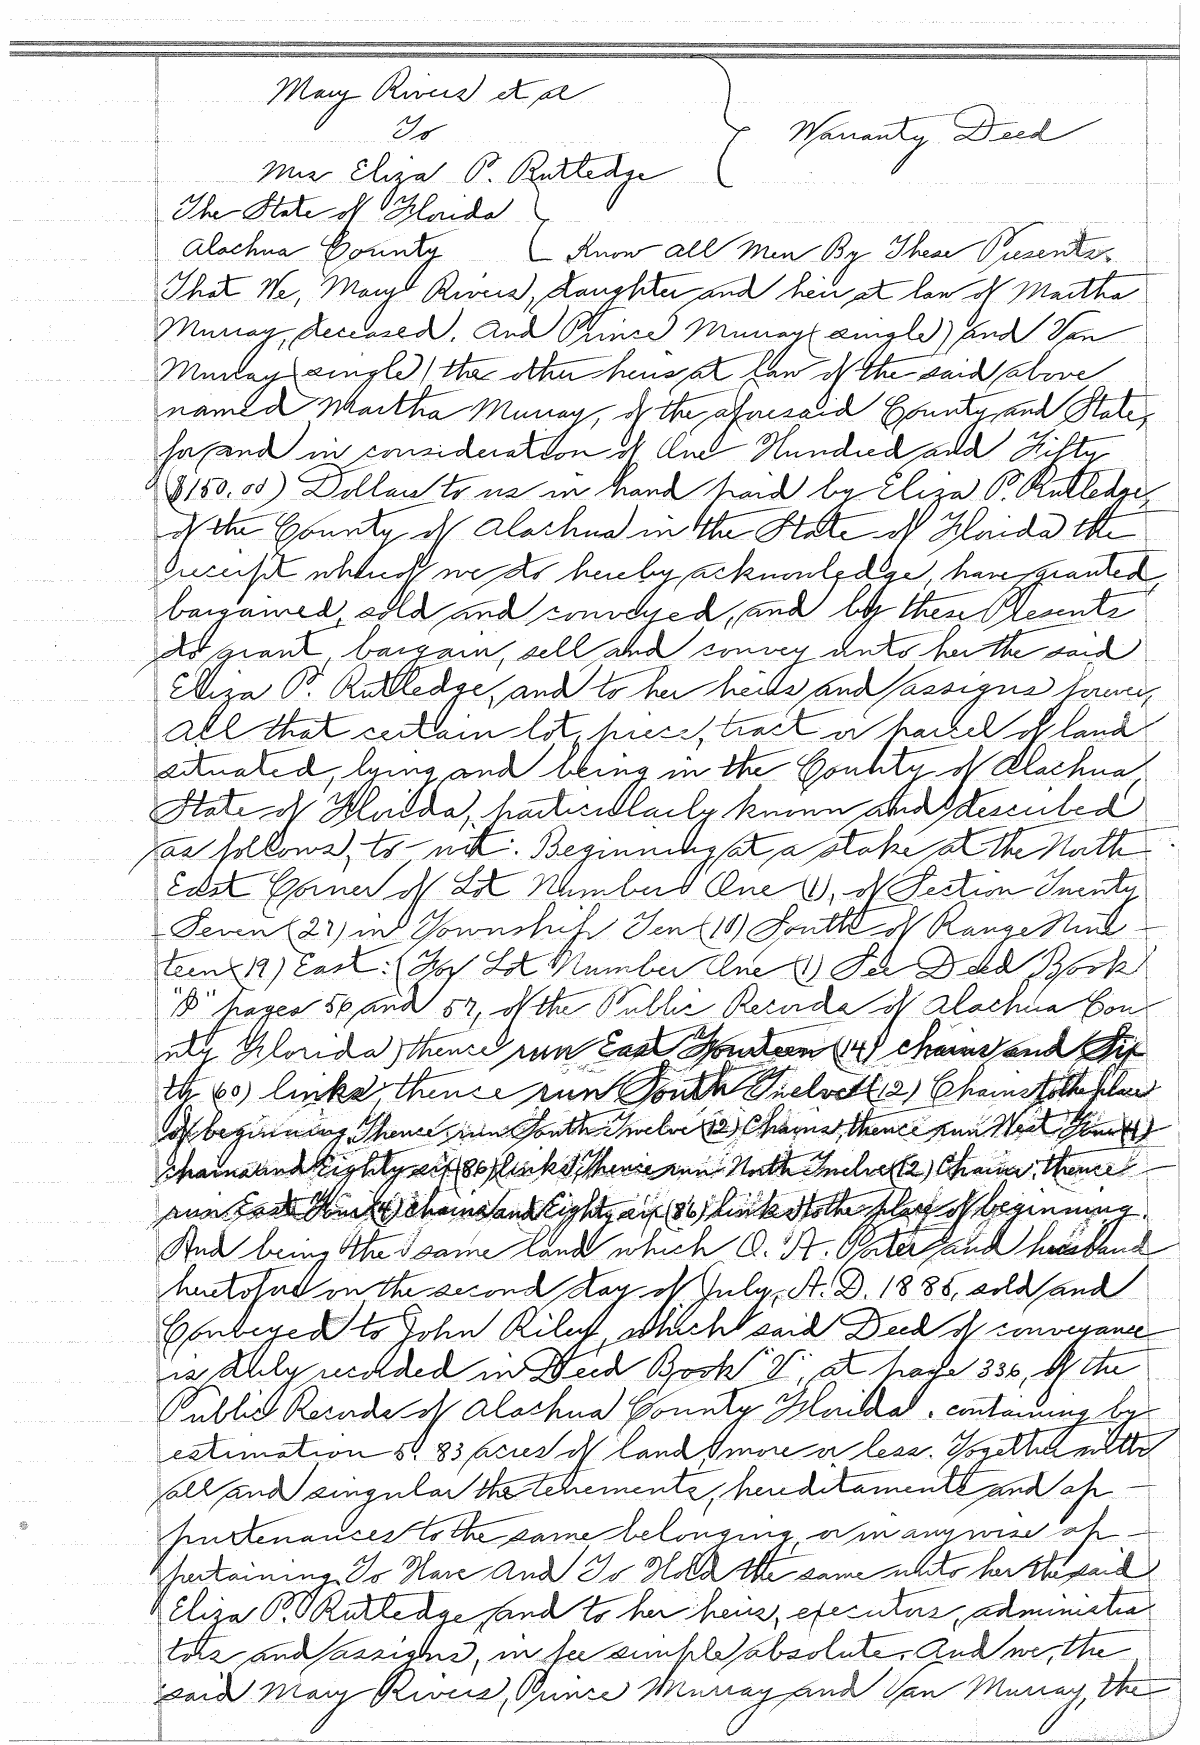 Mary Rivers et al
To
Mrs Eliza P. Rutledge
Warranty Deed
The State of Florida
Alachua County Know All Men By These Presents.
That We, Mary Rivers, daughter and heir at law of Martha
Murray, deceased. And Prince Murray (single) and Van
Murray (single) the other heirs at law of the said above
named Martha Murray, of the aforesaid County and State,
for and in consideration of One Hundred and Fifty
($150.00) Dollars to us in hand paid by Eliza P. Rutledge,
of the County of Alachua in the State of Florida the
receipt whereof we do hereby acknowledge, have granted,
bargained, sold and conveyed, and by these Presents
do grant, bargain, sell and convey unto her the said
Eliza P. Rutledge, and to her heirs and assigns forever,
All that certain lot, piece, tract or parcel of land
situated, lying and being in the County of Alachua,
State of Florida, particularly known and described
as follows, to-wit: Beginning at a stake at the North
East Corner of Lot Number One (1), of Section Twenty
Seven (27) in Township Ten (10) South of Range Nine-
teen (19) East: (For Lot Number One (1) See Deed Book
"B" pages 56 and 57, of the Public Records of Alachua Cou
nty Florida) thence run East Fourteen (14) chains and Six
ty (60) links, thence run South Twelve (12) Chains to the place
of beginning, Thence run South Twelve (12) Chains, thence run West Four (4)
chains and Eighty six (86) links, Thence run North Twelve (12) Chains, thence
run East Four (4) chains and Eighty six (86) links to the place of beginning.
And being the same land which O. A. Porter and husband
heretofore on the second day of July, A. D. 1885, sold and
Conveyed to John Riley, which said Deed of conveyance
is duly recorded in Deed Book "V", at page 336, of the
Public Records of Alachua County Florida. containing by
estimation 5.83 acres of land, more or less. Together with
all and singular the tenements, hereditaments and ap-
purtenances to the same belonging, or in anywise ap-
pertaining. To Have And To Hold the same unto her the said
Eliza P. Rutledge, and to her heirs, executors, administra
tors and assigns, in fee simple absolute. And we, the
said Mary Rivers, Prince Murray and Van Murray, the